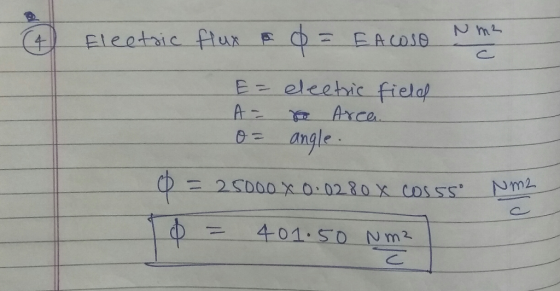 ④ Electric flux = ϕ = EAcosθ Nm²/C
E = electric field
A = Area
θ = angle.
ϕ = 25000 × 0.0280 × cos55° Nm²/C
ϕ = 401.50 Nm²/C